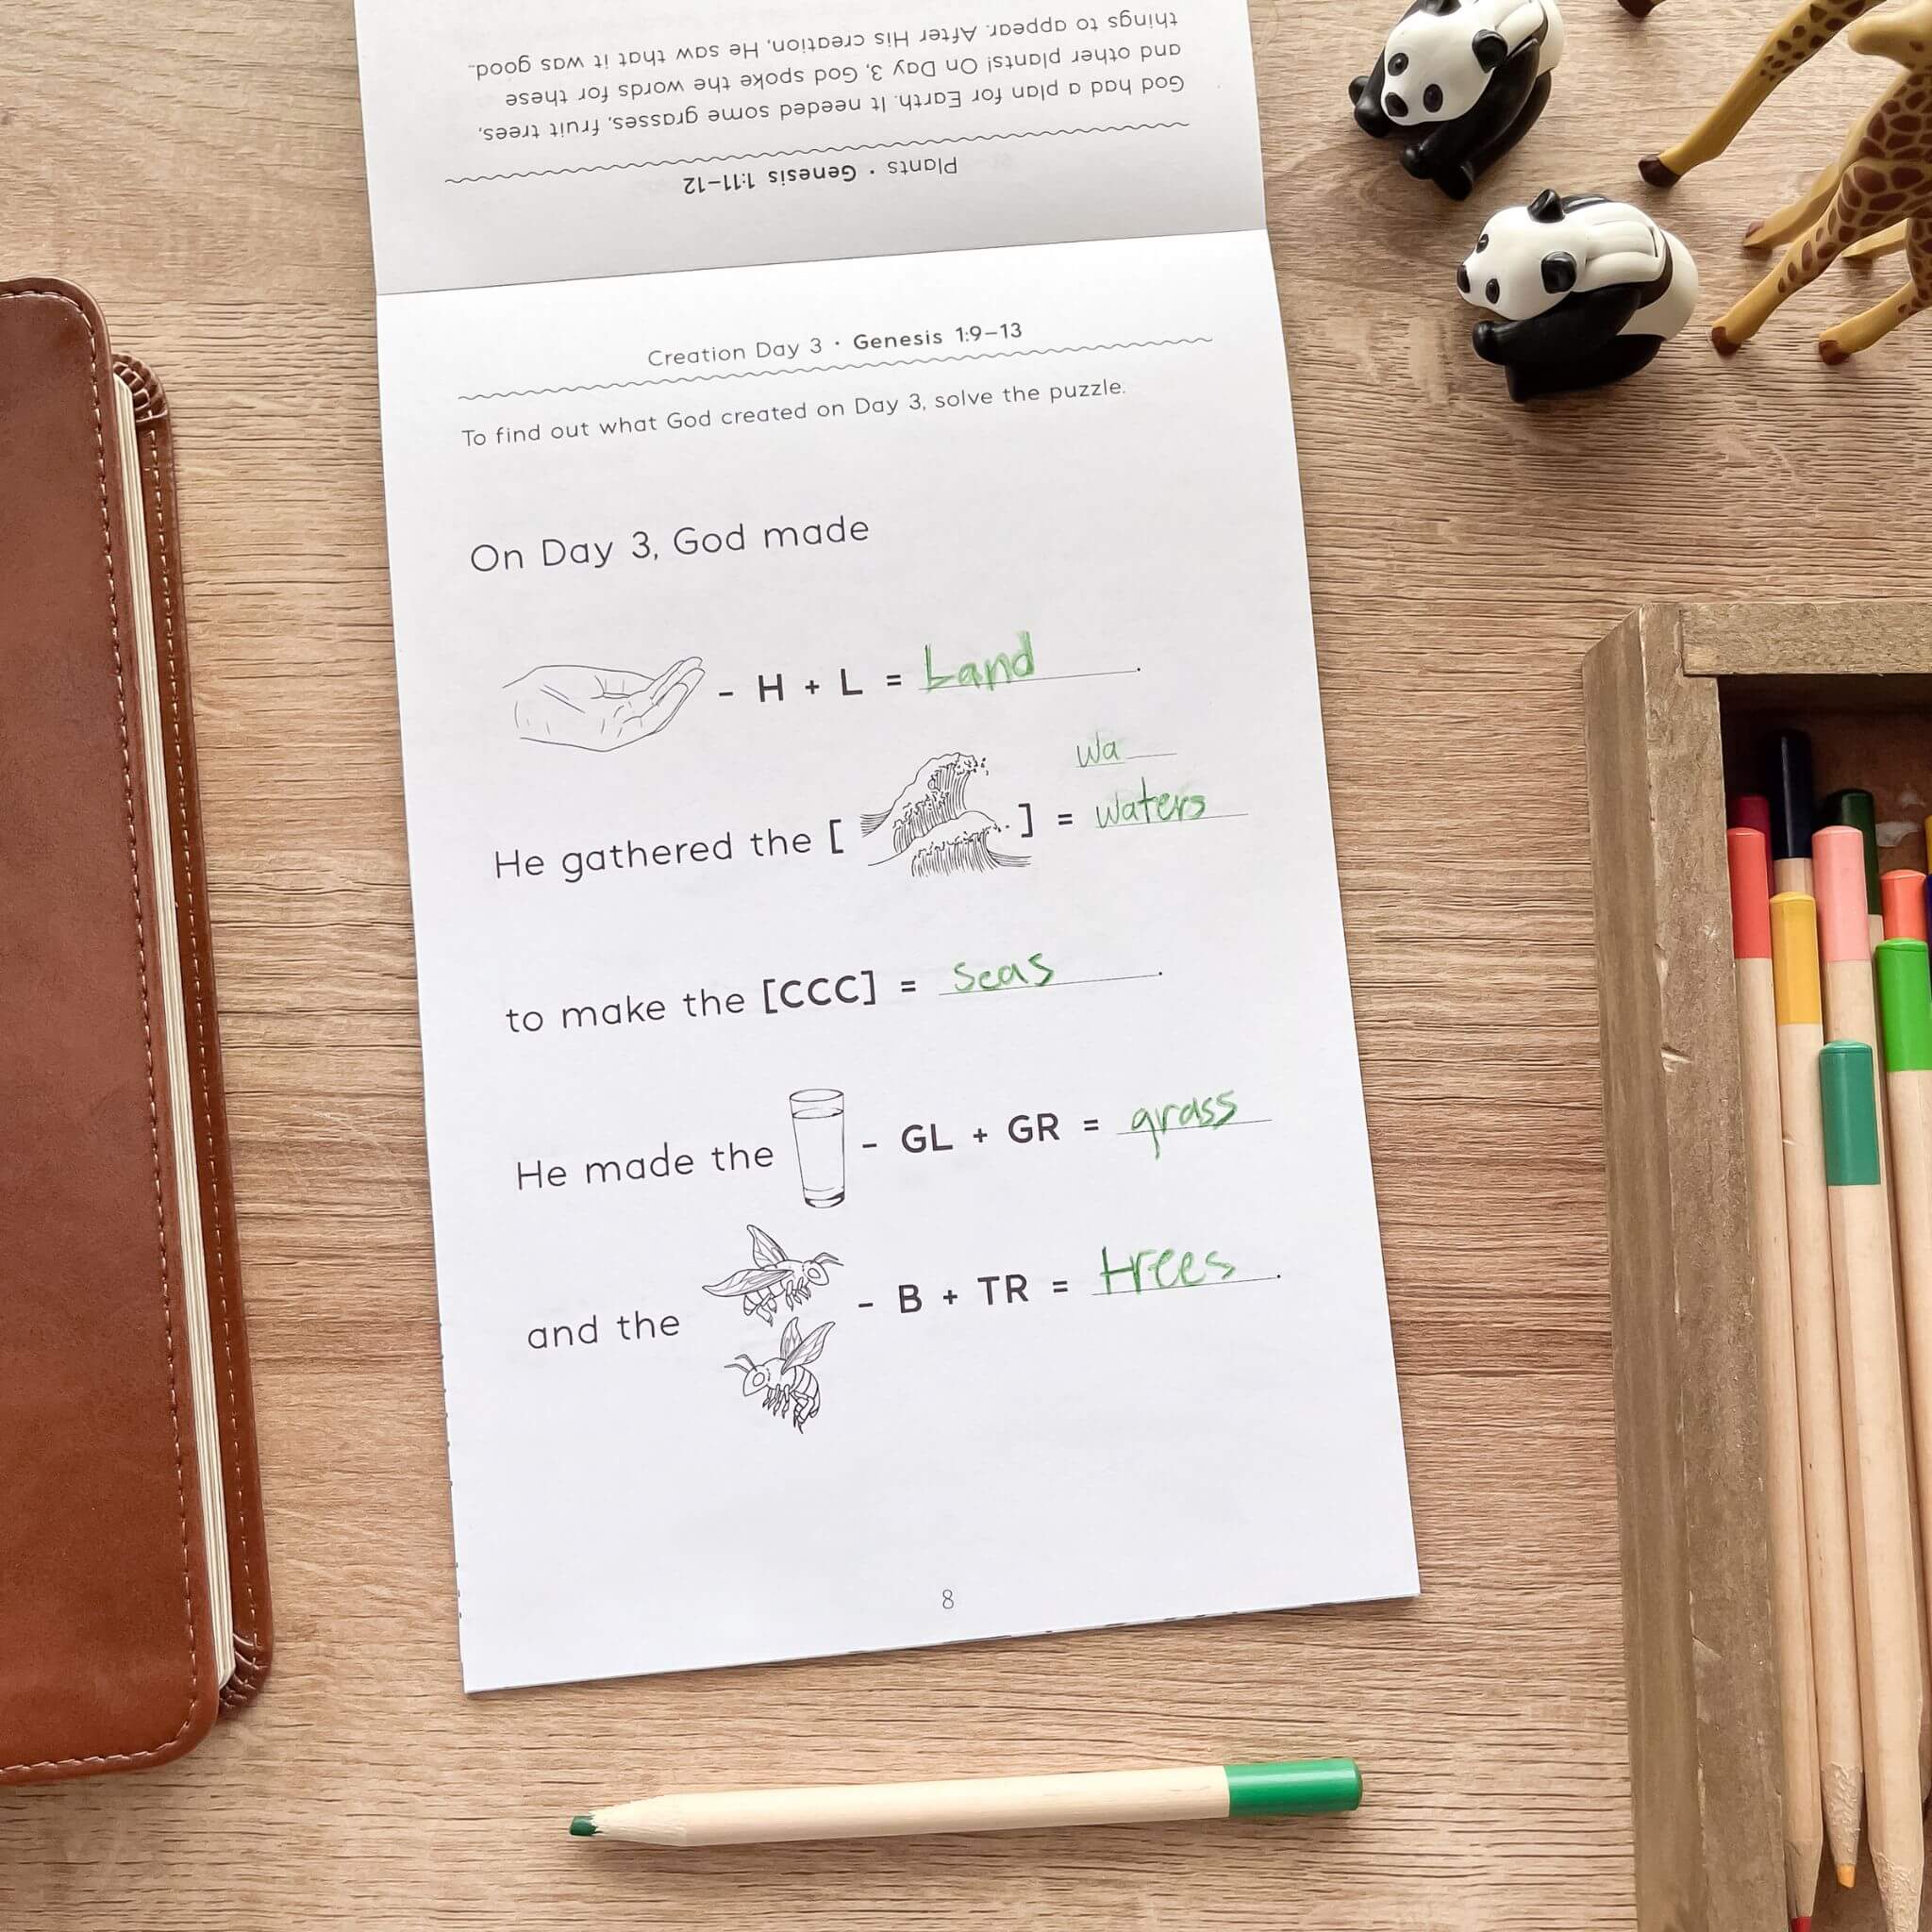 God had a plan for Earth. It needed some grasses, fruit trees,
and other plants! On Day 3, God spoke the words for these
things to appear. After His creation, He saw that it was good.
Plants · Genesis 1:11–12
Creation Day 3 · Genesis 1:9–13
To find out what God created on Day 3, solve the puzzle.
On Day 3, God made
- H + L = Land.
wa
He gathered the [ ] = waters
to make the [CCC] = seas.
He made the - GL + GR = grass
and the - B + TR = trees.
8